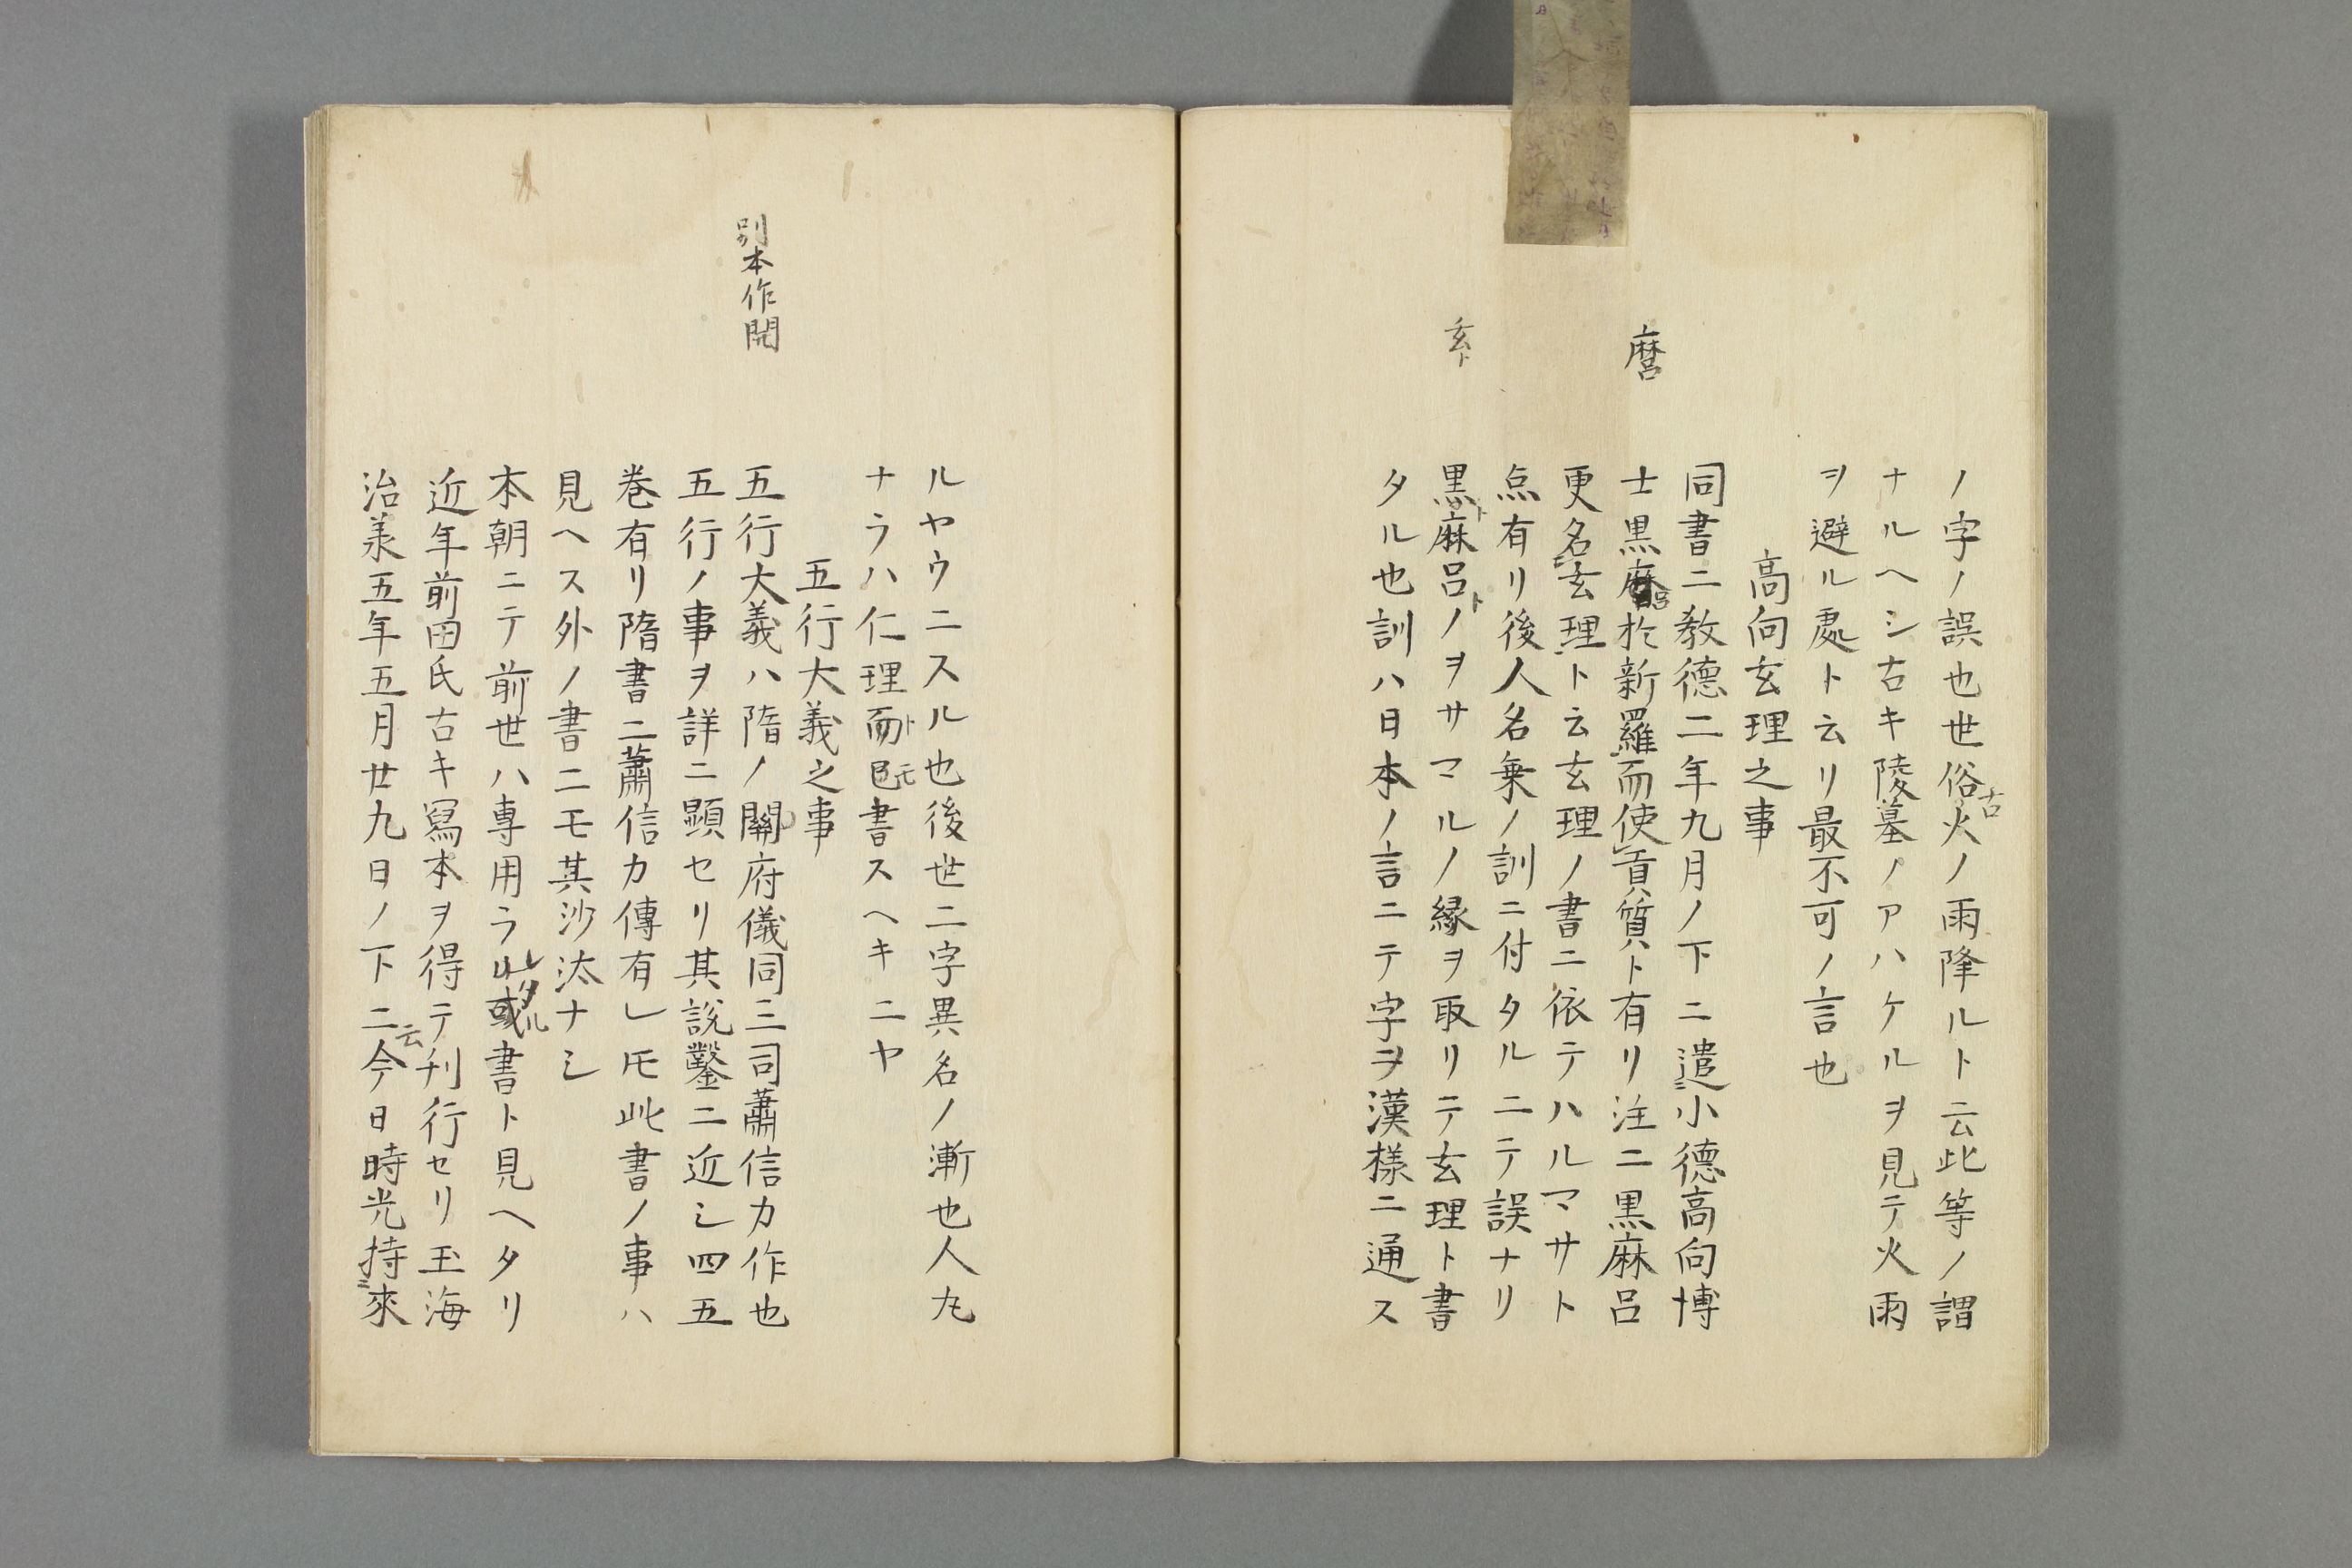 ノ字ノ誤也世俗火ノ雨降ルト云此等ノ謂
古
ナルヘシ古キ陵墓ノアハケルヲ見テ火雨
ヲ避ル處ト云リ最不可ノ言也
高向玄理之事
同書ニ敎德二年九月ノ下ニ遣小德高向博
麿
士黒麿於新羅而使貢質ト有リ注ニ黒麻呂
更名玄理ト云玄理ノ書ニ依テハルマサト
点有リ後人名乗ノ訓ニ付タルニテ誤ナリ
玄ト
黒麻呂ノヲサマルノ縁ヲ取リテ玄理ト書
タル也訓ハ日本ノ言ニテ字ヲ漢様ニ通ス
ルヤウニスル也後世二字異名ノ漸也人丸
ナラハ仁理而已書スヘキニヤ
五行大義之事
別本作開
五行大義ハ隋ノ關府儀同三司蕭信カ作也
五行ノ事ヲ詳ニ顕セリ其說鑿ニ近シ四五
巻有リ隋書ニ蕭信カ傳有レ𪜈此書ノ事ハ
見ヘス外ノ書ニモ其沙汰ナシ
本朝ニテ前世ハ専用ラレタル書ト見ヘタリ
近年前田氏古キ寫本ヲ得テ刊行セリ玉海
治承五年五月廿九日ノ下ニ云今日時光持來